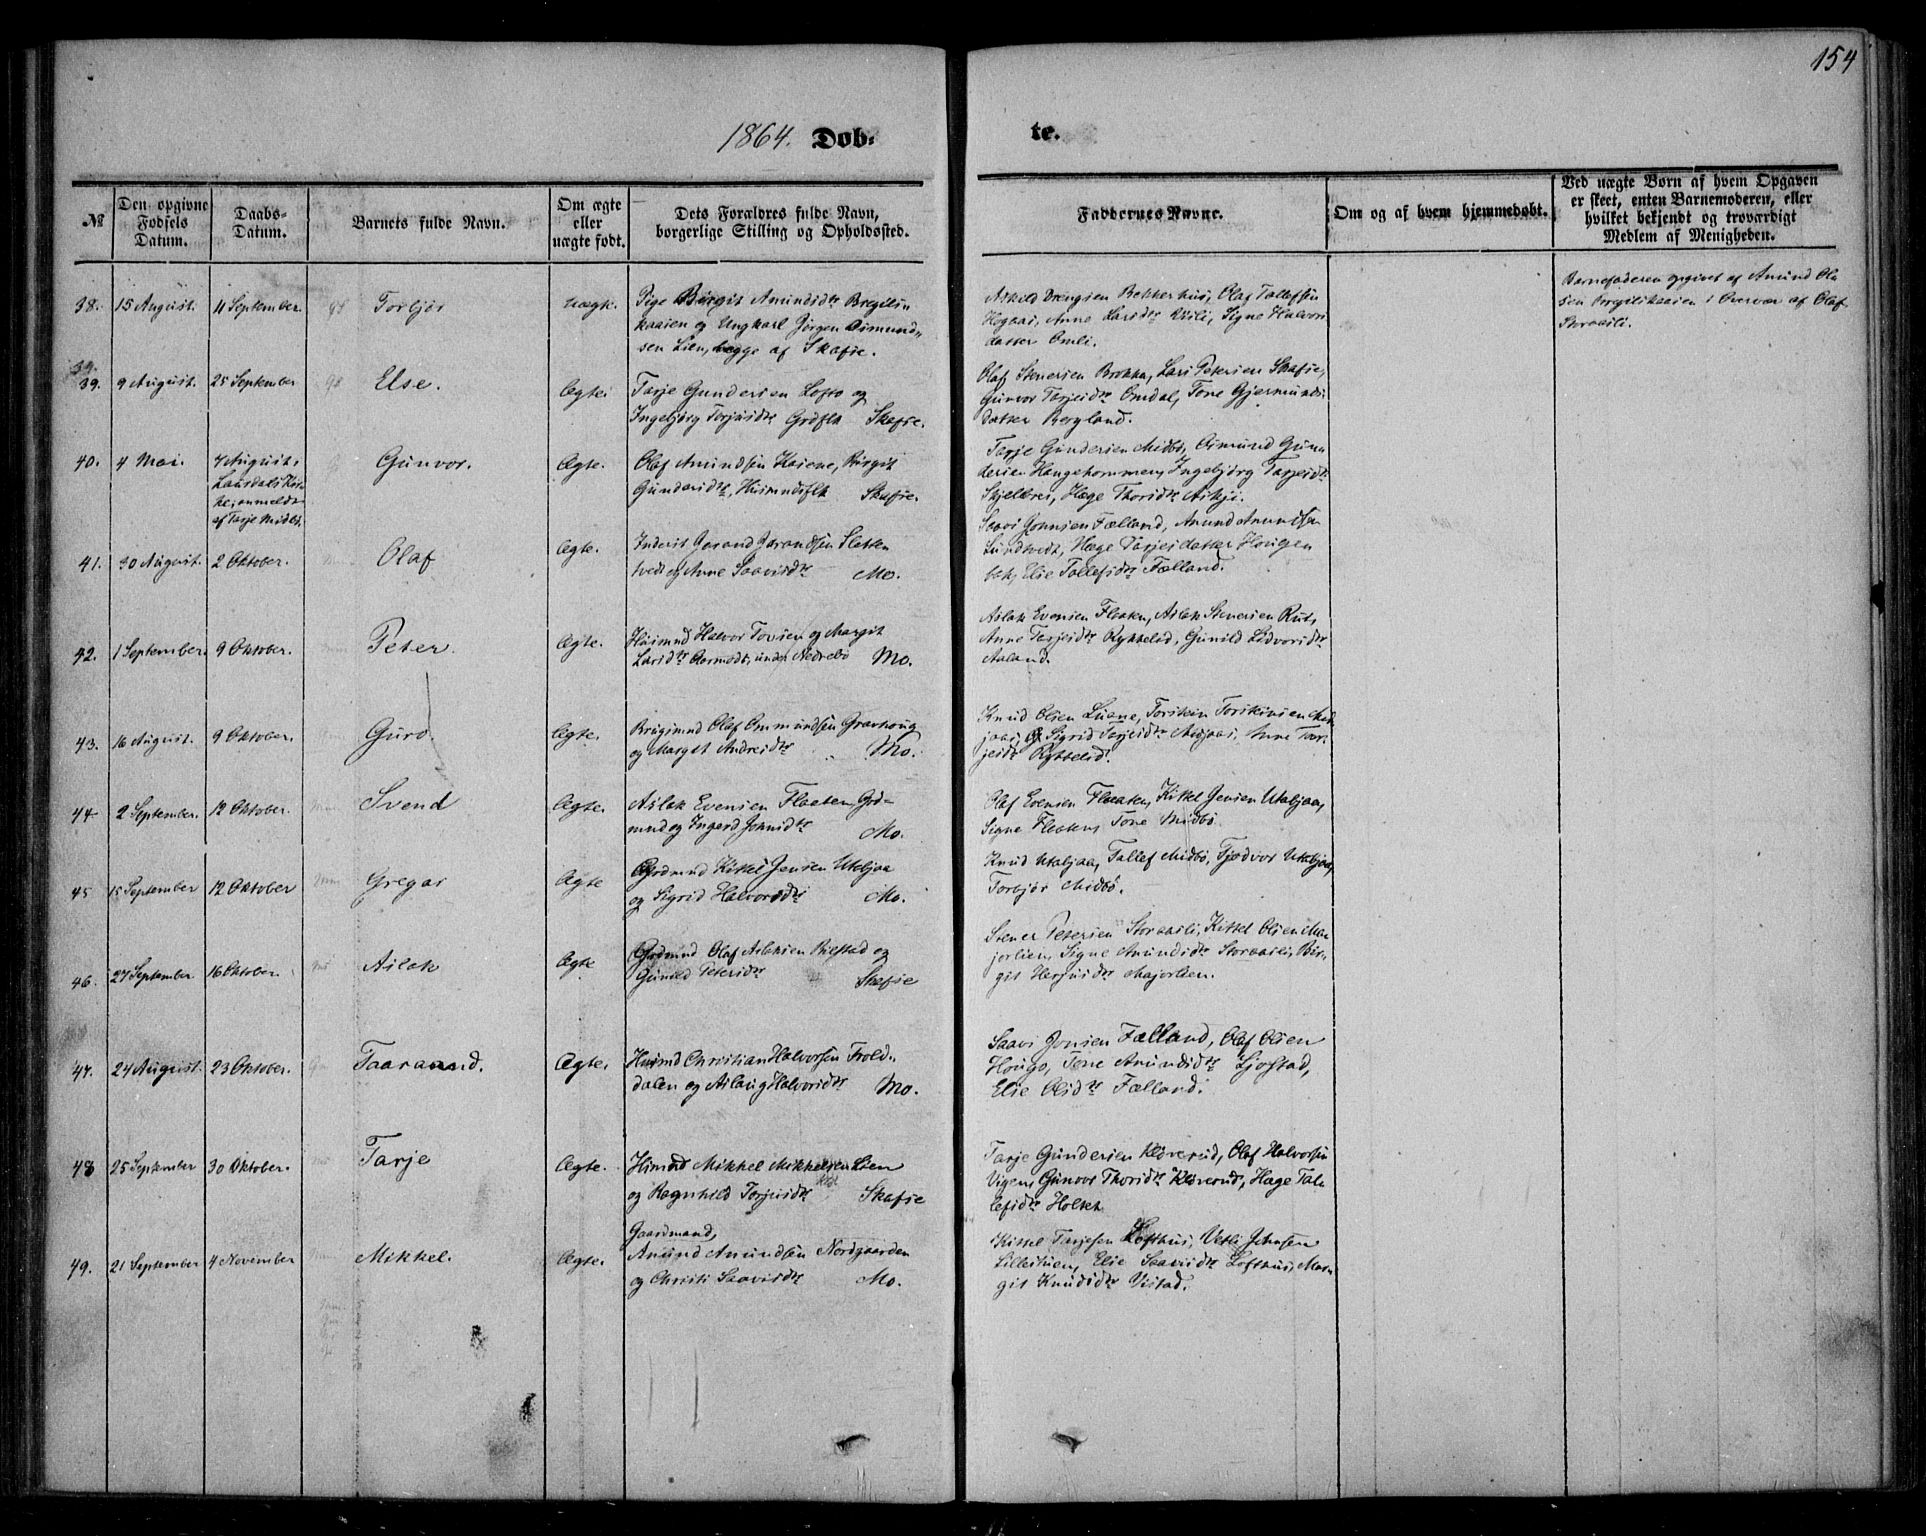 154
1864. Døb-
te.
No
Den opgivne
Fødsels
Datum.
Daabs-
Datum.
Barnets fulde Navn.
Om ægte
eller
uægte født.
Dets Forældres fulde Navn,
borgerlige Stilling og Opholdssted.
Faddernes Navne.
Om og af hvem hjemmedøbt.
Ved uægte Børn af hvem Opgaven
er skeet, enten Barnemoderen, eller
hvilket bekjendt og troværdigt
Medlem af Menigheden.
38. 15 August. 11 September Torbjør uægte.
Pige Birgit Amundsdtr Bregelsn
kaaien og Ungkarl Jørgen Osmund-
sen Lien, begge af Skafse.
Aslrid Drengsen Bekkerhus, Olaf Tallefsen
Hegaai, Anne Larsdtr Vili, Signe Halvors
datter Omli.
Barnefaderen opgivet af Amund Ol-
sen i Overvær af Olaf
Storaasli.
39.
39. 9 August. 25 September Else. Ægte.
Tarje Gundersen Lofto og
Ingebjørg Torjusdtr Skafse.
Olaf Stenersen Brokka, Lars Petersen Skafse,
Gunvor Tarjeidtr Omdal, Tone Gjermunds-
datter Bergland.
40. 4 Mai. 7 August i Gunvor. Ægte.
Laurdals Kir-
ke, anmeldt
af Tarje Midbø.
Olaf Amundsen Kaiene, Birgit
Gundersdtr, Huusmdsflk Skafse.
Tarje Gundersen Midbø, Osmund Gun-
dersen Haugehommen, Ingebjørg Tarjeidtr
Skjelbrei, Hæge Thorsdtr Askji.
41. 30 August. 2 Oktober. Olaf Ægte.
Inderst Jorand Jorandsen Sletten
tvedt og Anne Saavesdtr Mo.
Saavi Jonnsen Fælland, Anund Anundsen
Lundtvedt, Hæge Tarjesdatter Hougen
bak, Else Tallefsdtr Fælland.
42. 1 September. 9 Oktober. Peter. Ægte.
Huusmnd Halvor Tovsen og Margit
Larsdtr Aarmodt, under Nedrebø Mo.
Aslak Evensen Flaaten, Aslak Stenersen Rui,
Anne Tarjeidtr Rykkelid, Gunild Ledvorsdtr
Aaland.
43. 16 August. 9 Oktober. Guro. Ægte.
Brugsmnd Olaf Ommundsen Gravhoug
og Marget Andresdtr Mo.
Knud Olsen Luene, Torstein Torsteinsen Mid-
jaas, Sigrid Tarjeidtr Midjaas, Anne Tar-
jeidtr Rykkelid.
44. 2 September. 12 Oktober. Svend Ægte.
Aslak Evensen Flaaten, Grd-
mnd og Ingerd Johnsdtr Mo.
Olaf Evensen Flaaten, Kittel Jensen Utabjaa,
Signe Flaaten, Tone Midbø
45 15 September 12 Oktober Gregar Ægte
Grdmnd Kittel Jensen Utabjaa
og Sigrid Halvorsdtr Mo.
Knud Utabjaa, Tallef Midbø, Tjodvor Utabjaa,
Torbjør Midbø.
46. 27 September 16 Oktober. Aslak Ægte
Grdmnd Olaf Aslaksen Rilstad og
Gunild Petersdtr Skafse
Stener Petersen Storaasli, Kittel Olsen Ma-
jorlien, Signe Amundsdtr Storaasli, Bir-
git Herjusdtr Majorlien.
47. 24 August. 23 Oktober. Taaraand. Ægte.
Husmd Christian Halvorsen Trold-
dalen og Aslaug Halvorsdtr Mo.
Saavi Jonsen Fælland, Olaf Olsen
Hougo, Tone Anundsdtr Ljosstad,
Else Olsdtr Fælland.
48 25 September 30 Oktober. Tarje Ægte.
Husmd Mikkel Mikkelsen Lien
og Ragnhild Torjusdtr Skafse
Tarje Gundersen Kleverud, Olaf Halvorsen
Vigen, Gunvor Thorsdtr Kleverud, Hæge Tal-
lefsdtr Holtet
49. 21 September 4 November Mikkel. Ægte.
Gaardmand,
Anund Anundsen Nordgaarden
og Christi Saavesdtr Mo.
Kittel Tarjesen Lofthus, Vetli Johnsen
Lillestuen, Else Saavesdtr Lofthus, Mar-
git Knudsdtr Vistad.